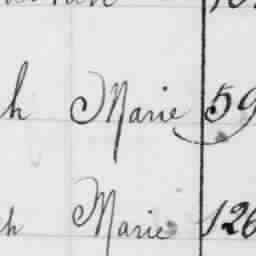 h Marie 59
h Marie 126